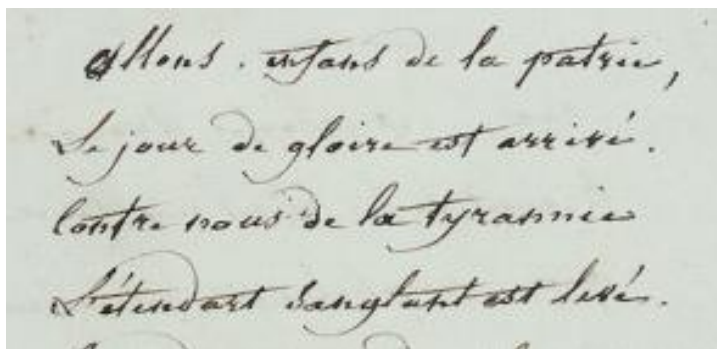 allons. enfans de la patrie,
Le jour de gloire est arrivé.
Contre nous de la tyrannie
L'étendart sanglant est levé.